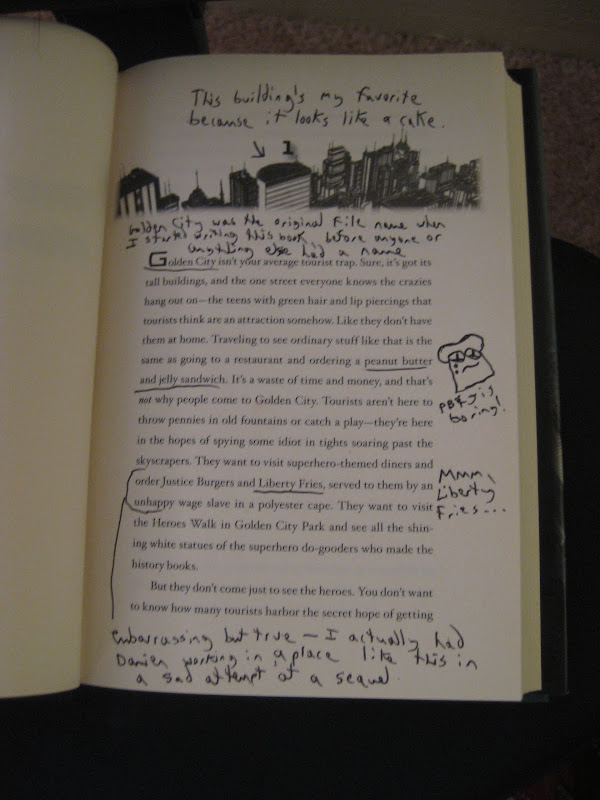 This building's my favorite
because it looks like a cake.
1
Golden City was the original file name when
I started writing this book, before anyone or
anything else had a name
Golden City isn't your average tourist trap. Sure, it's got its
tall buildings, and the one street everyone knows the crazies
hang out on—the teens with green hair and lip piercings that
tourists think are an attraction somehow. Like they don't have
them at home. Traveling to see ordinary stuff like that is the
same as going to a restaurant and ordering a peanut butter
and jelly sandwich. It's a waste of time and money, and that's
not why people come to Golden City. Tourists aren't here to
throw pennies in old fountains or catch a play—they're here
in the hopes of spying some idiot in tights soaring past the
skyscrapers. They want to visit superhero-themed diners and
order Justice Burgers and Liberty Fries, served to them by an
unhappy wage slave in a polyester cape. They want to visit
the Heroes Walk in Golden City Park and see all the shin-
ing white statues of the superhero do-gooders who made the
history books.
But they don't come just to see the heroes. You don't want
to know how many tourists harbor the secret hope of getting
PB&J is
boring!
Mmm,
Liberty
Fries...
embarrassing but true — I actually had
Damien working in a place like this in
a sad attempt at a sequel.